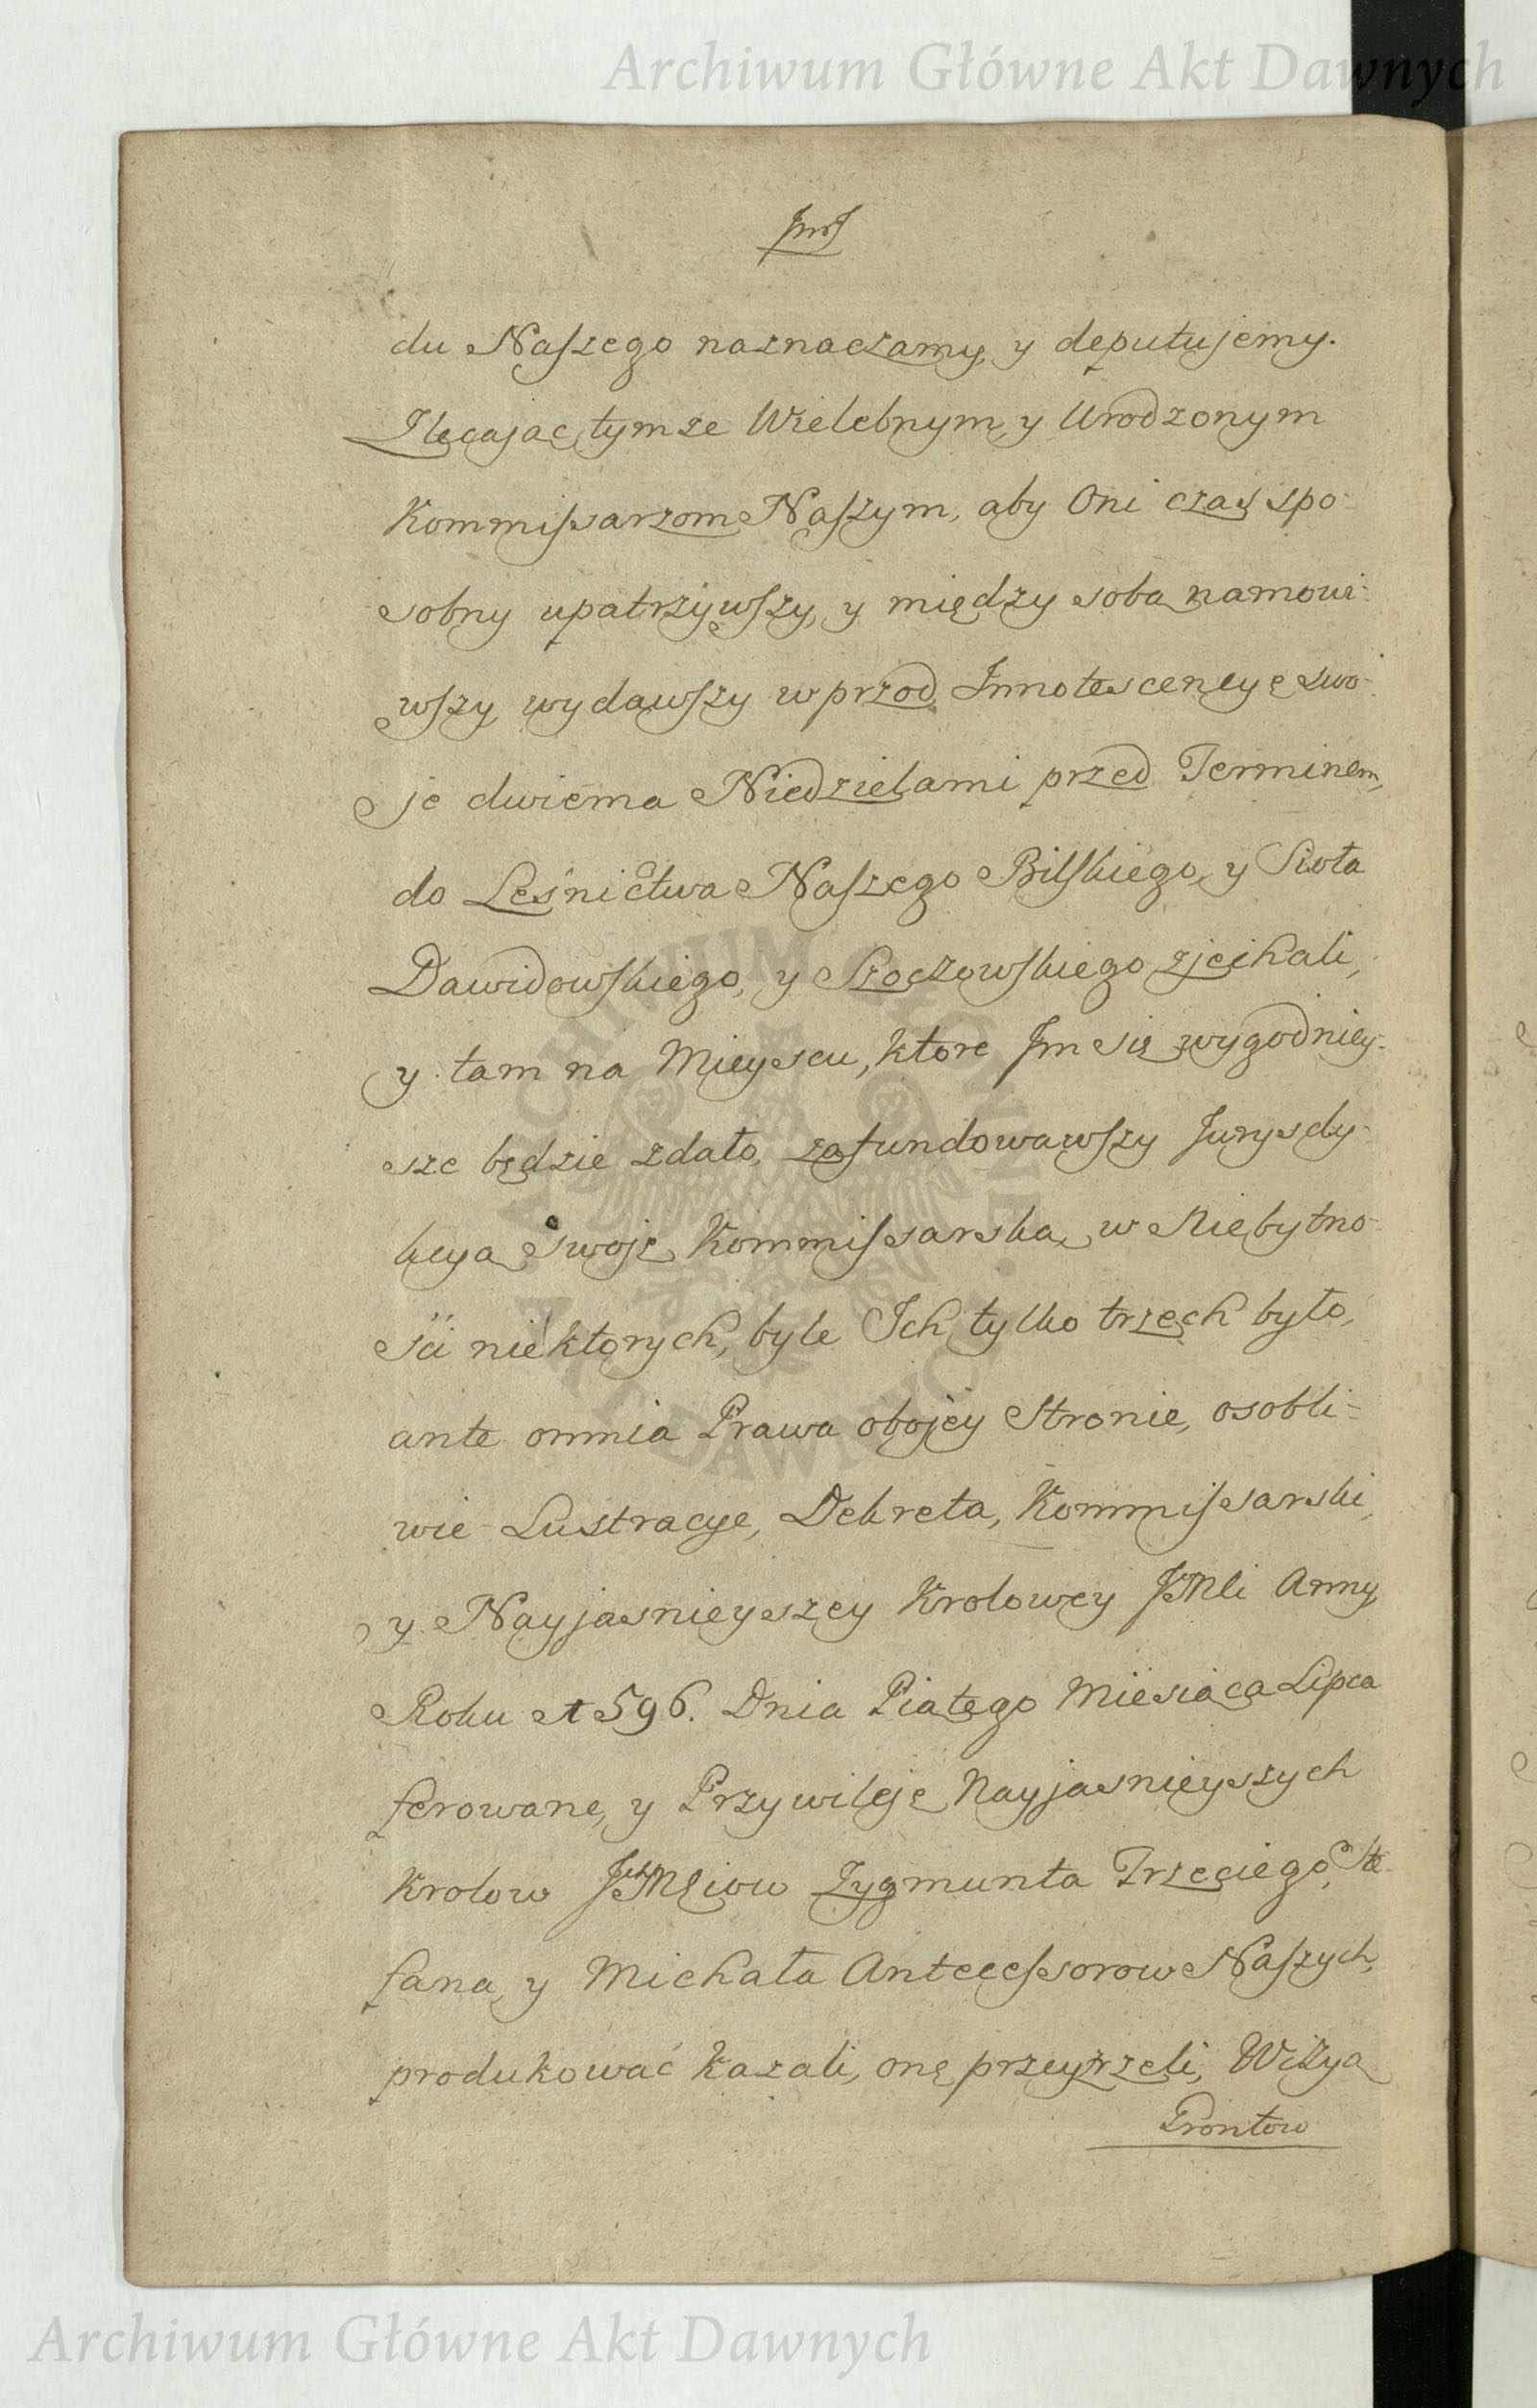 Archiwum Główne Akt Dawnych
du Naszego naznaczamy, y deputujemy.
Zlecając tymże Wielebnym, y Urodzonym
Kommissarzom Naszym, aby Oni czas spo-
sobny upatrzywszy, y między sobą namowi-
wszy wydawszy wprzod Innotescencyę swo-
je dwiema Niedzielami przed Terminem,
do Leśnictwa Naszego Bilskiego, y Sioła
Dawidowskiego, y zjechali,
y tam na Mieyscu, ktore Im się wygodniey-
sze będzie zdało, zafundowawszy Jurysdy-
kcyą swoję Kommissarską, w Niebytno-
ści niektorych, byle Ich tylko trzech było,
ante omnia Prawa obojey Stronie, osobli-
wie Lustracye, Dekreta, Kommissarski,
y Nayjasnieyszey Krolowey JKMći Anny
Roku 1596. Dnia Piątego Miesiąca Lipca
ferowane, y Przywileje Nayjasnieyszych
Krolow Zygmunta Trzeciego, Ste-
fana, y Michała Antecessorow Naszych,
produkować kazali, onę przeyrzeli, Wizyą
Grontow
ARCHIWUM GŁÓWNE AKT DAWNYCH
Archiwum Główne Akt Dawnych